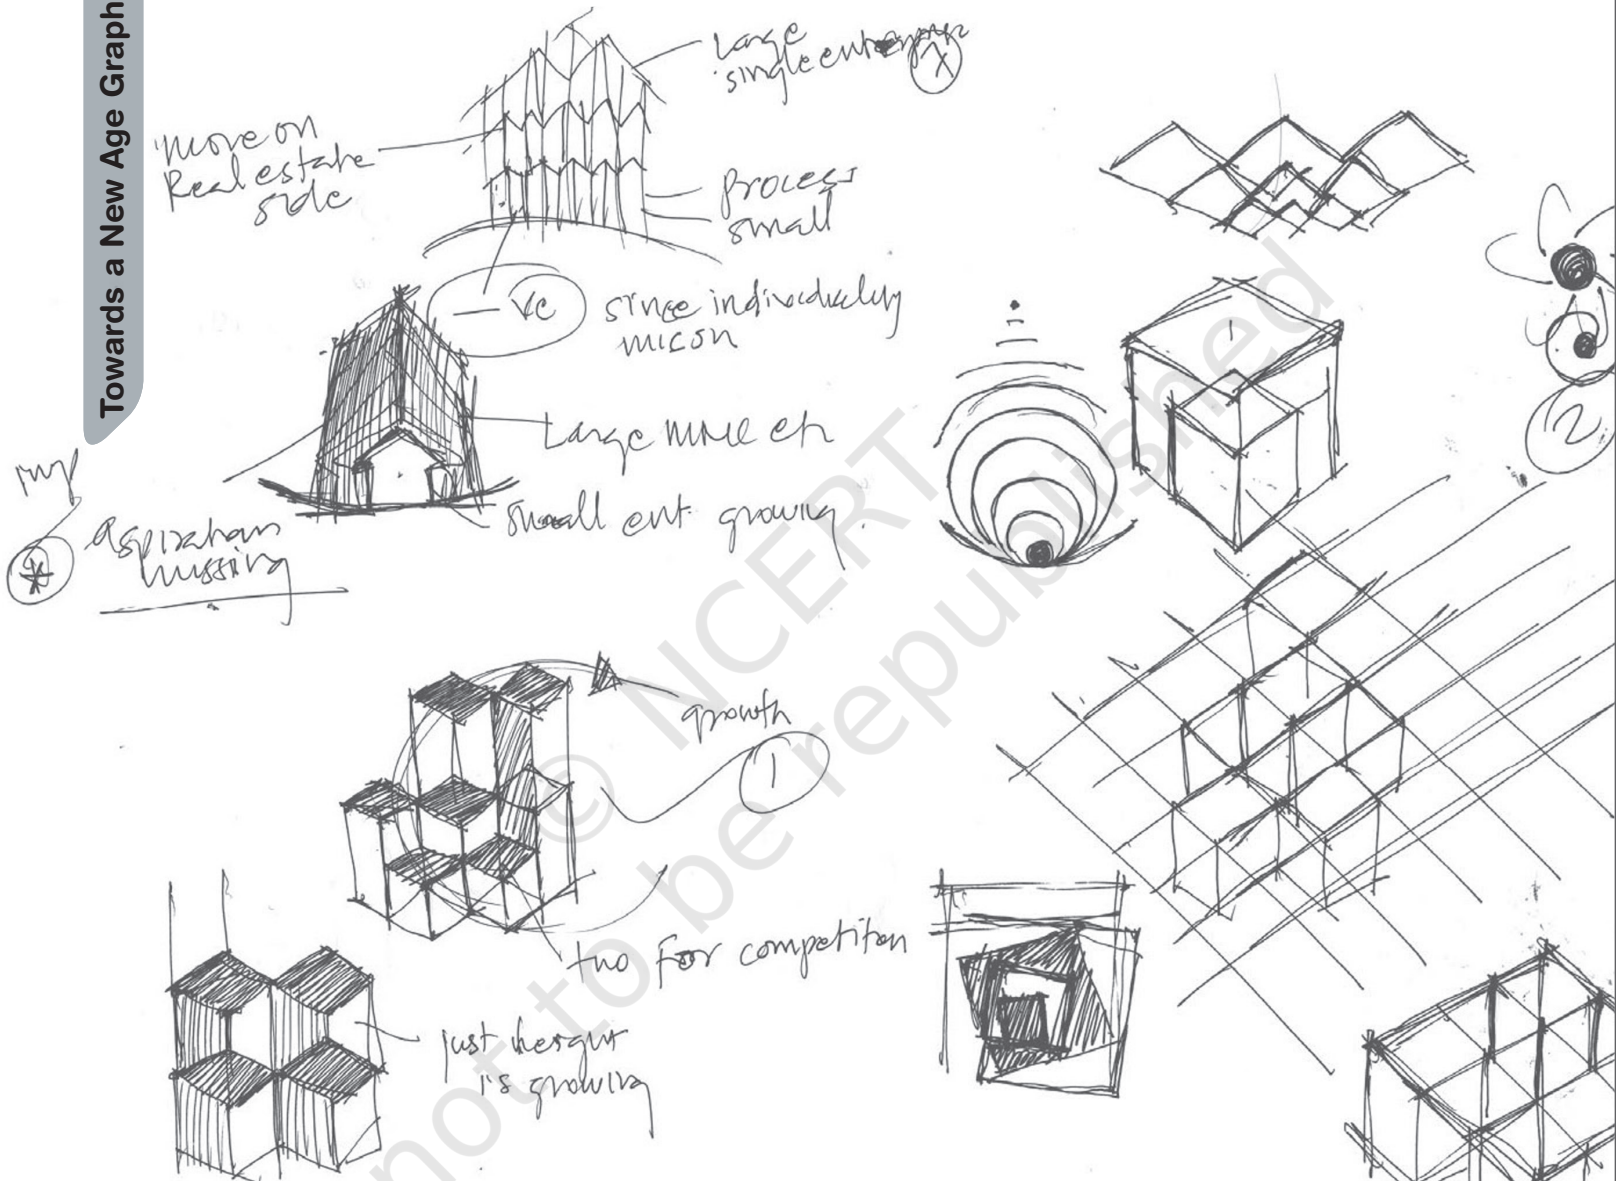 Towards a New Age Graph
Large
single
X
move on
Real estate
side
Process
small
- ve
since individually
Large
small ent. growing.
imp
*
Aspiration
missing
growth
1
two for competition
just height
is growing
1
2
© NCERT
not to be republished